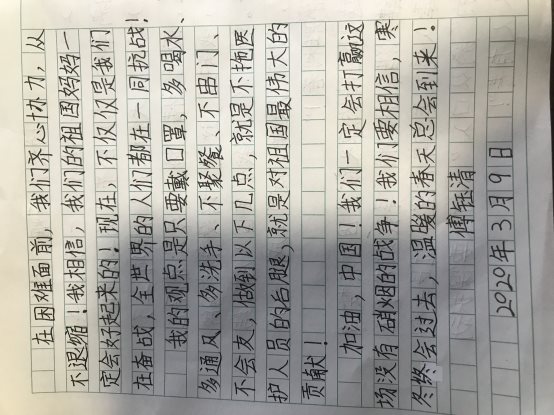 在困难面前，我们齐心协力，从
不退缩！我相信，我们的祖国妈妈一
定会好起来的！现在，不仅仅是我们
在奋战，全世界的人们都在一同抗战！
我的观点是只要戴口罩，多喝水、
多通风、多洗手、不聚餐、不串门、
不会友，做到以下几点，就是不拖医
护人员的后腿，就是对祖国最伟大的
贡献！
加油，中国！我们一定会打赢这
场没有硝烟的战争！我们要相信，寒
冬终会过去，温暖的春天总会到来！
傅钰清
2020年3月9日